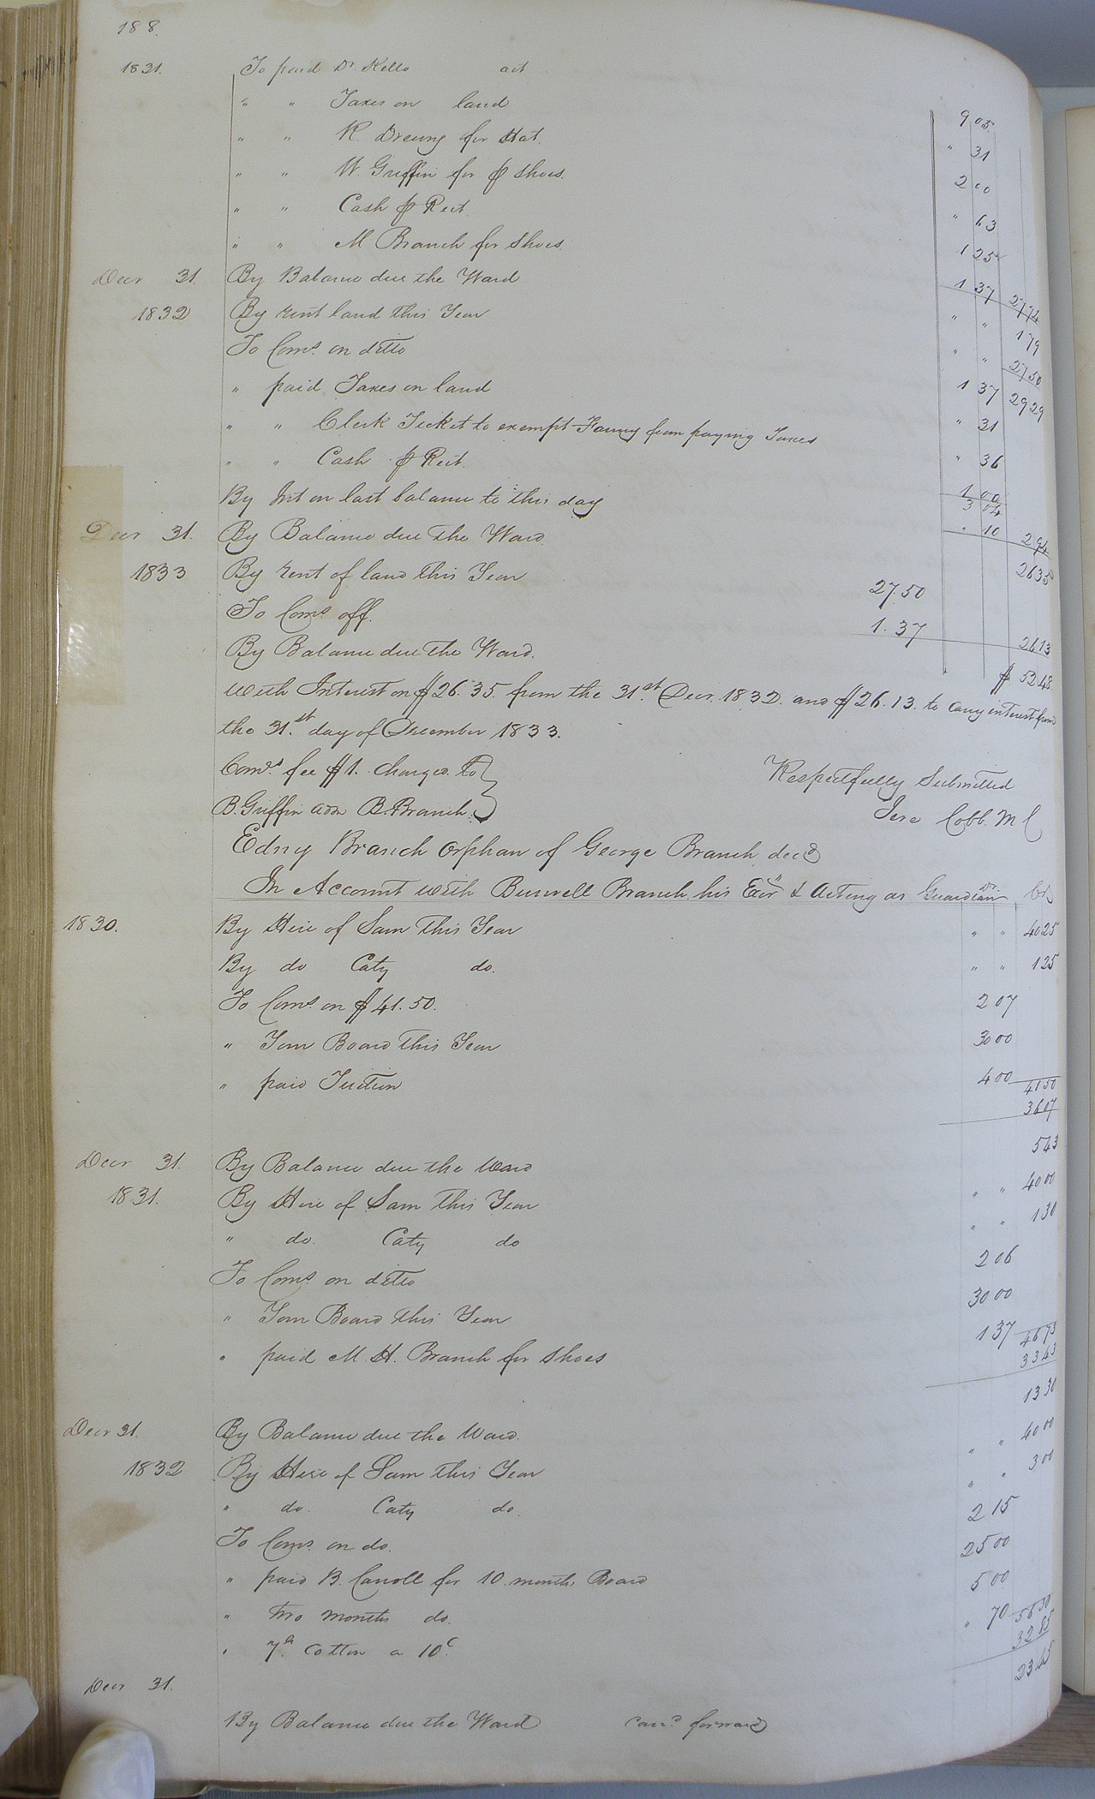 188.
1831. To paid Dr Kello act 9 05
" " Taxes on land " 31
" " R. Drewry for Hat. 2 00
" " W. Griffin for pr Shoes. " 63
" " Cash pr Rect. 1 25
" " M Branch for Shoes 1 37 27 74
Decr 31. By Balance due the Ward " " 1 79
1832 By rent land this Year " " 27 50
To Coms. on ditto 1 37 29 29
" paid Taxes on land " 31
" " Clerk Ticket to exempt Fanny from paying Taxes " 36
" " Cash pr Rect. 1 00
3 04
By Int on last balance to this day " 10 2 94
Decr 31. By Balance due the Ward 26 35
1833 By rent of land this Year 27.50
To Coms off. 1.37 26 13
By Balance due the Ward. $ 52.48
With Interest on $26.35 from the 31st Decr. 1832. and $26.13. to carry interest from
the 31st day of December 1833.
Coms. fee $1. charged to
B. Griffin adm B. Branch.
Respectfully Submitted
Jere Cobb. M C
Edny Branch Orphan of George Branch decd
In Account with Burwell Branch his Exr & Acting as Guardian Dr. Cr
1830. By Hire of Sam This Year " " 40 25
By do Caty do. " " 1 25
To Coms on $41.50. 2 07
" Your Board this Year 30 00
" paid Tuition 4 00 41 50
36 07
Decr 31. By Balance due the Ward 5 43
1831. By Hire of Sam This Year " " 40 00
" do. Caty do " " 1 30
To Coms on ditto 2 06
" Your Board this Year 30 00
" paid M. H. Branch for Shoes 1 37 46 73
33 43
Decr 31. By Balance due the Ward. 13 30
1832 By Hire of Sam this Year " " 40 00
" do. Caty do. " " 3 00
To Coms. on do. 2 15
" paid B. Carroll for 10 months Board 25 00
" two months do. 5 00
" 7 lb. Cotton a 10c. " 70 56 30
32 85
Decr 31. 23 45
By Balance due the Ward card forward